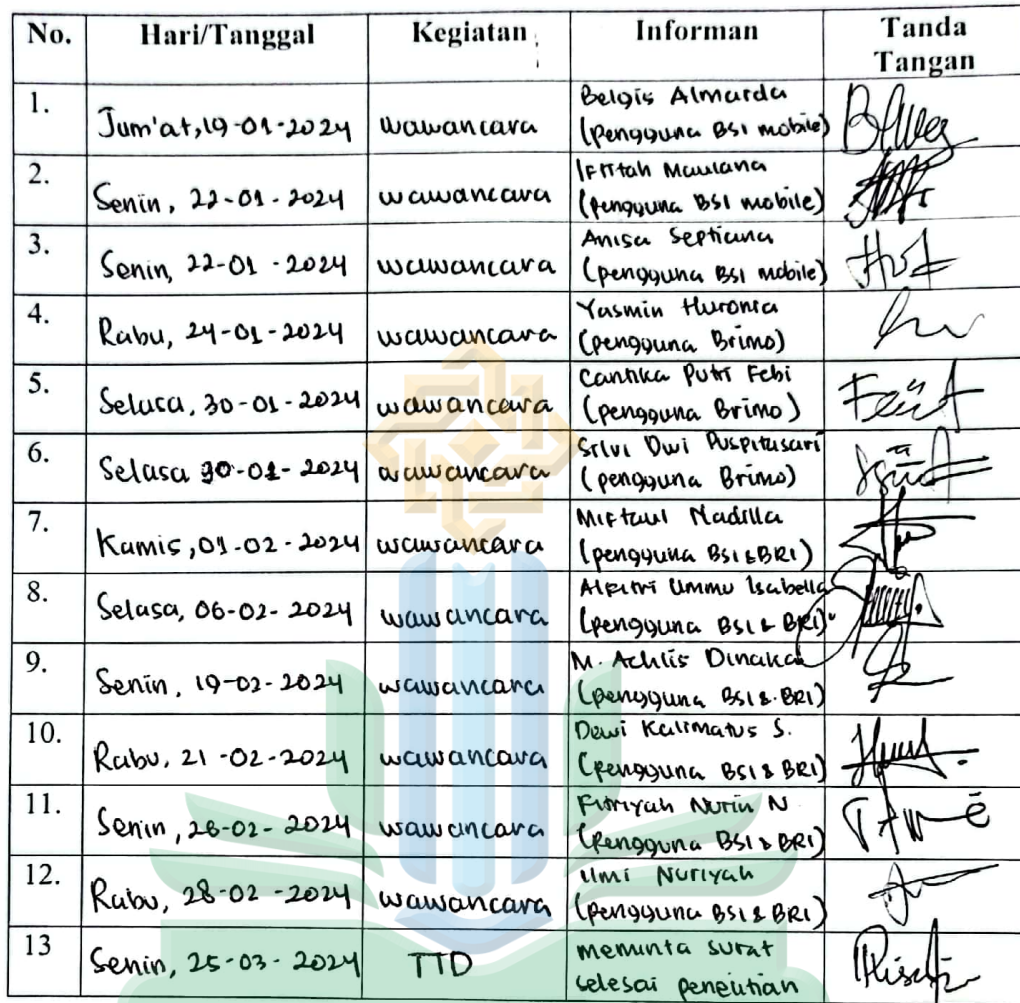 No. Hari/Tanggal Kegiatan Informan Tanda Tangan
1. Jum'at, 19-01-2024 wawancara Belgis Almarda (pengguna BSI mobile)
2. Senin, 22-01-2024 wawancara Iftitah Maulana (pengguna BSI mobile)
3. Senin, 22-01-2024 wawancara Anisa Septiana (pengguna BSI mobile)
4. Rabu, 24-01-2024 wawancara Yasmin (pengguna Brimo)
5. Selasa, 30-01-2024 wawancara Cantika Putri Febi (pengguna Brimo)
6. Selasa 30-01-2024 wawancara Silvi Dwi Puspitasari (pengguna Brimo)
7. Kamis, 01-02-2024 wawancara Miftaul Nadilla (pengguna BSI & BRI)
8. Selasa, 06-02-2024 wawancara Alfitri Ummu Isabella (pengguna BSI & BRI)
9. Senin, 19-02-2024 wawancara M. Achlis Dinaka (pengguna BSI & BRI)
10. Rabu, 21-02-2024 wawancara Dewi Kalimatus S. (pengguna BSI & BRI)
11. Senin, 26-02-2024 wawancara Nurin N (pengguna BSI & BRI)
12. Rabu, 28-02-2024 wawancara Nuriyah (pengguna BSI & BRI)
13 Senin, 25-03-2024 TTD meminta surat selesai penelitian